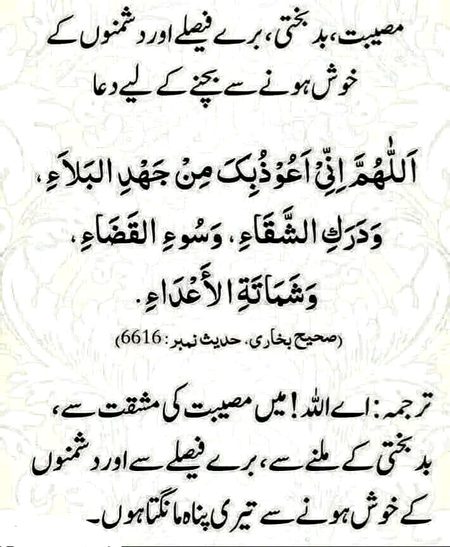 مصیبت، بدبختی، برے فیصلے اور دشمنوں کے
خوش ہونے سے بچنے کے لیے دعا
اَللّٰهُمَّ اِنِّیْ اَعُوْذُبِکَ مِنْ جَهْدِ البَلاَءِ،
وَدَرَكِ الشَّقَاءِ، وَسُوءِ القَضَاءِ،
وَشَمَاتَةِ الأَعْدَاءِ.
(صحیح بخاری، حدیث نمبر: 6616)
ترجمہ: اے اللہ! میں مصیبت کی مشقت سے،
بدبختی کے ملنے سے، برے فیصلے سے اور دشمنوں
کے خوش ہونے سے تیری پناہ مانگتا ہوں۔